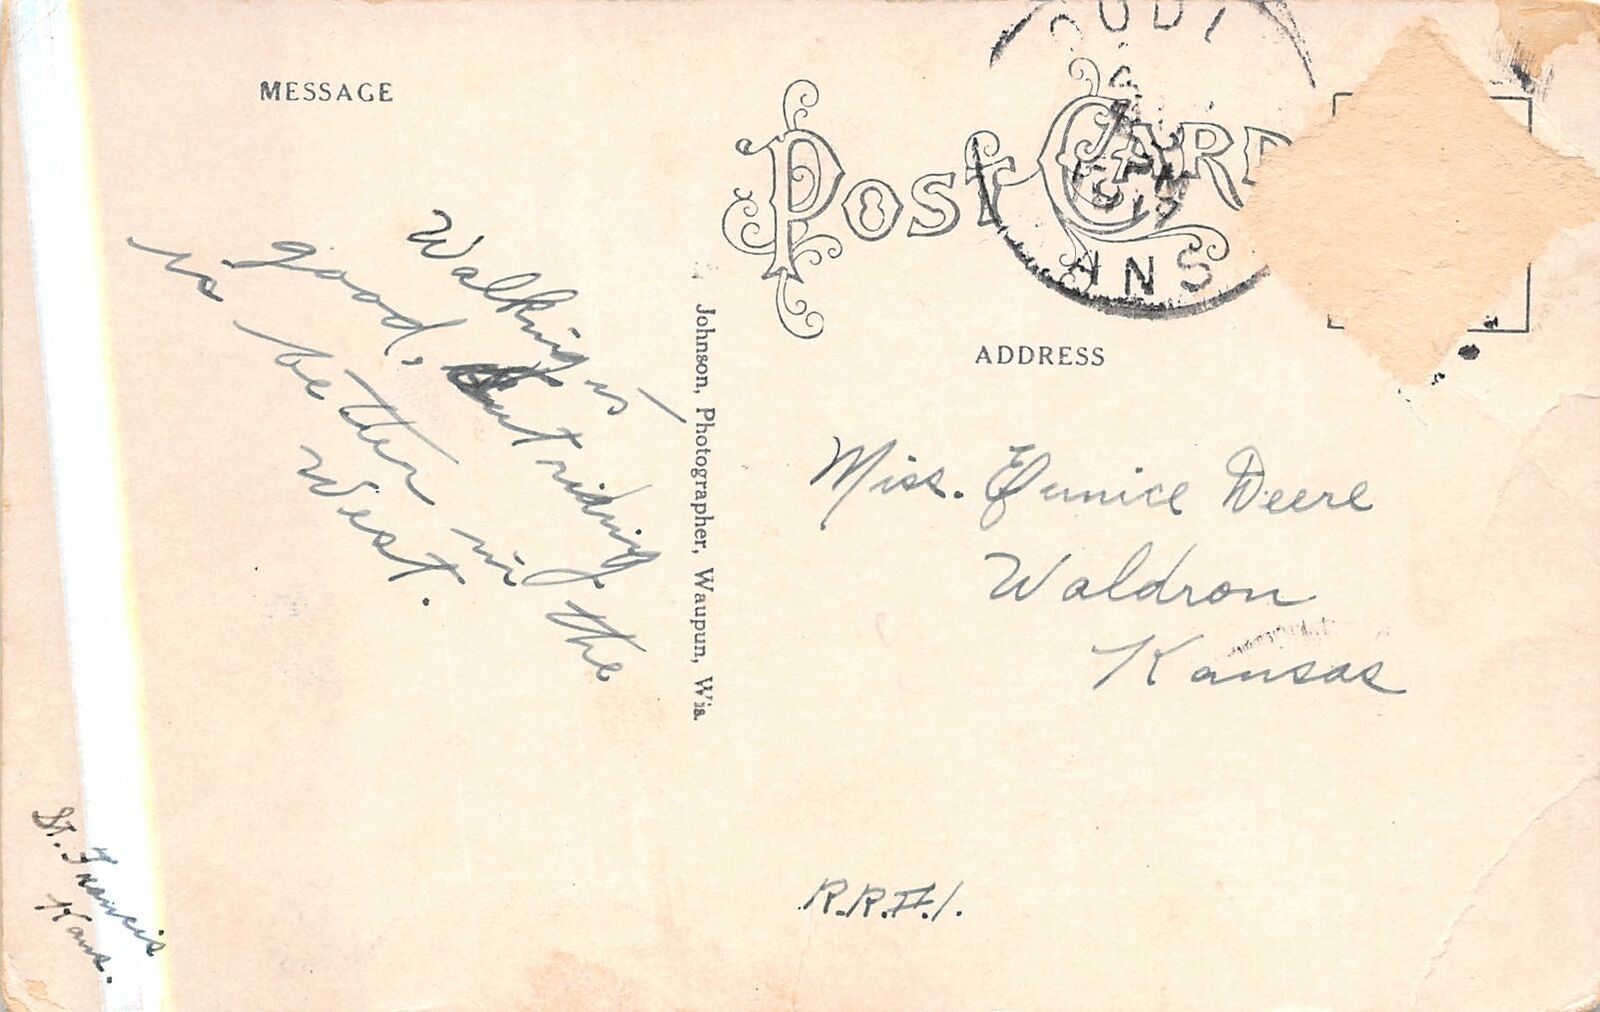 MESSAGE
POST CARD
Walking is
good. But riding
is better in the
West.
Johnson, Photographer, Waupun, Wis.
ADDRESS
Miss. Eunice Deere
Waldron
Kansas
R.R.#1.
St. Francis
Kans.
PM
ANS